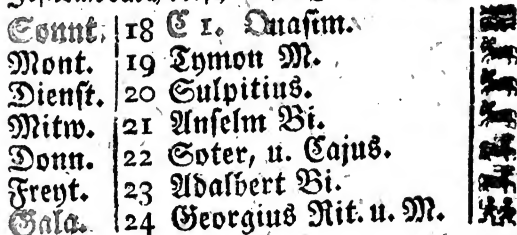 Sonnt. 18 C 1. Quasim.
Mont. 19 Tymon M.
Dienst. 20 Sulpitius.
Mitw. 21 Anselm Bi.
Donn. 22 Soter, u. Cajus.
Freyt. 23 Adalbert Bi.
Gala. 24 Georgius Rit. u. M.